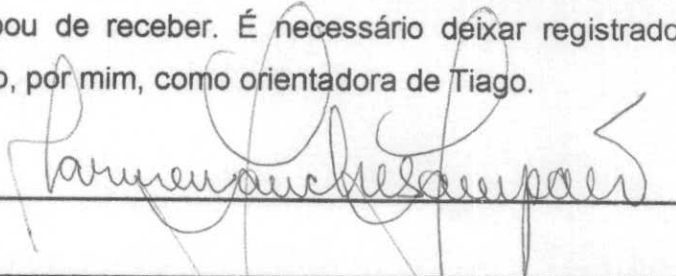 pou de receber. É necessário deixar registrado
o, por mim, como orientadora de Tiago.